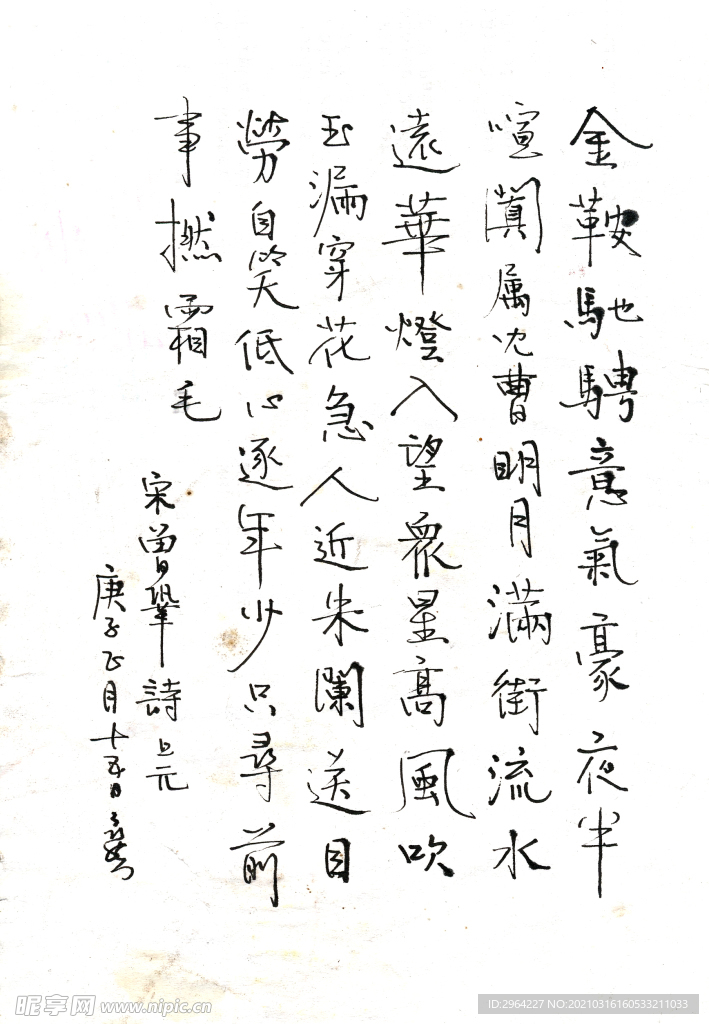 金鞍馳騁意氣豪夜半
喧闐属沈曹明月滿街流水
遠華燈入望眾星高風吹
玉漏穿花急人近朱闌送目
勞自笑低心逐年少只尋前
事撚霜毛
宋曾鞏詩上元
庚子正月十五日
昵享网 www.nipic.cn
ID:2964227 NO:20210316160533211033